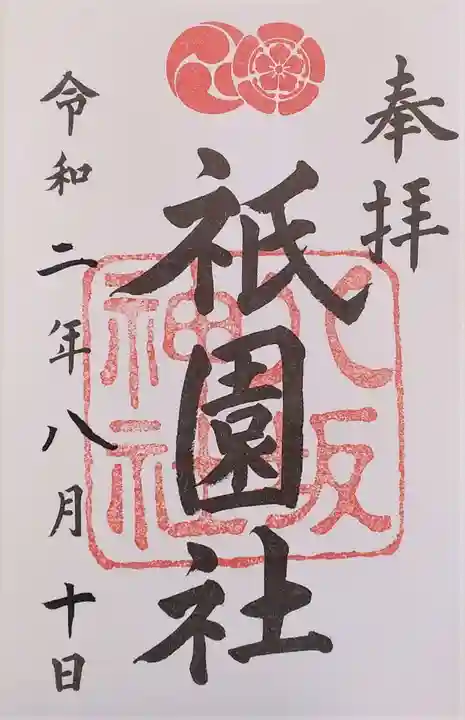 奉拝
祇園社
八坂
神社
令和二年八月十日